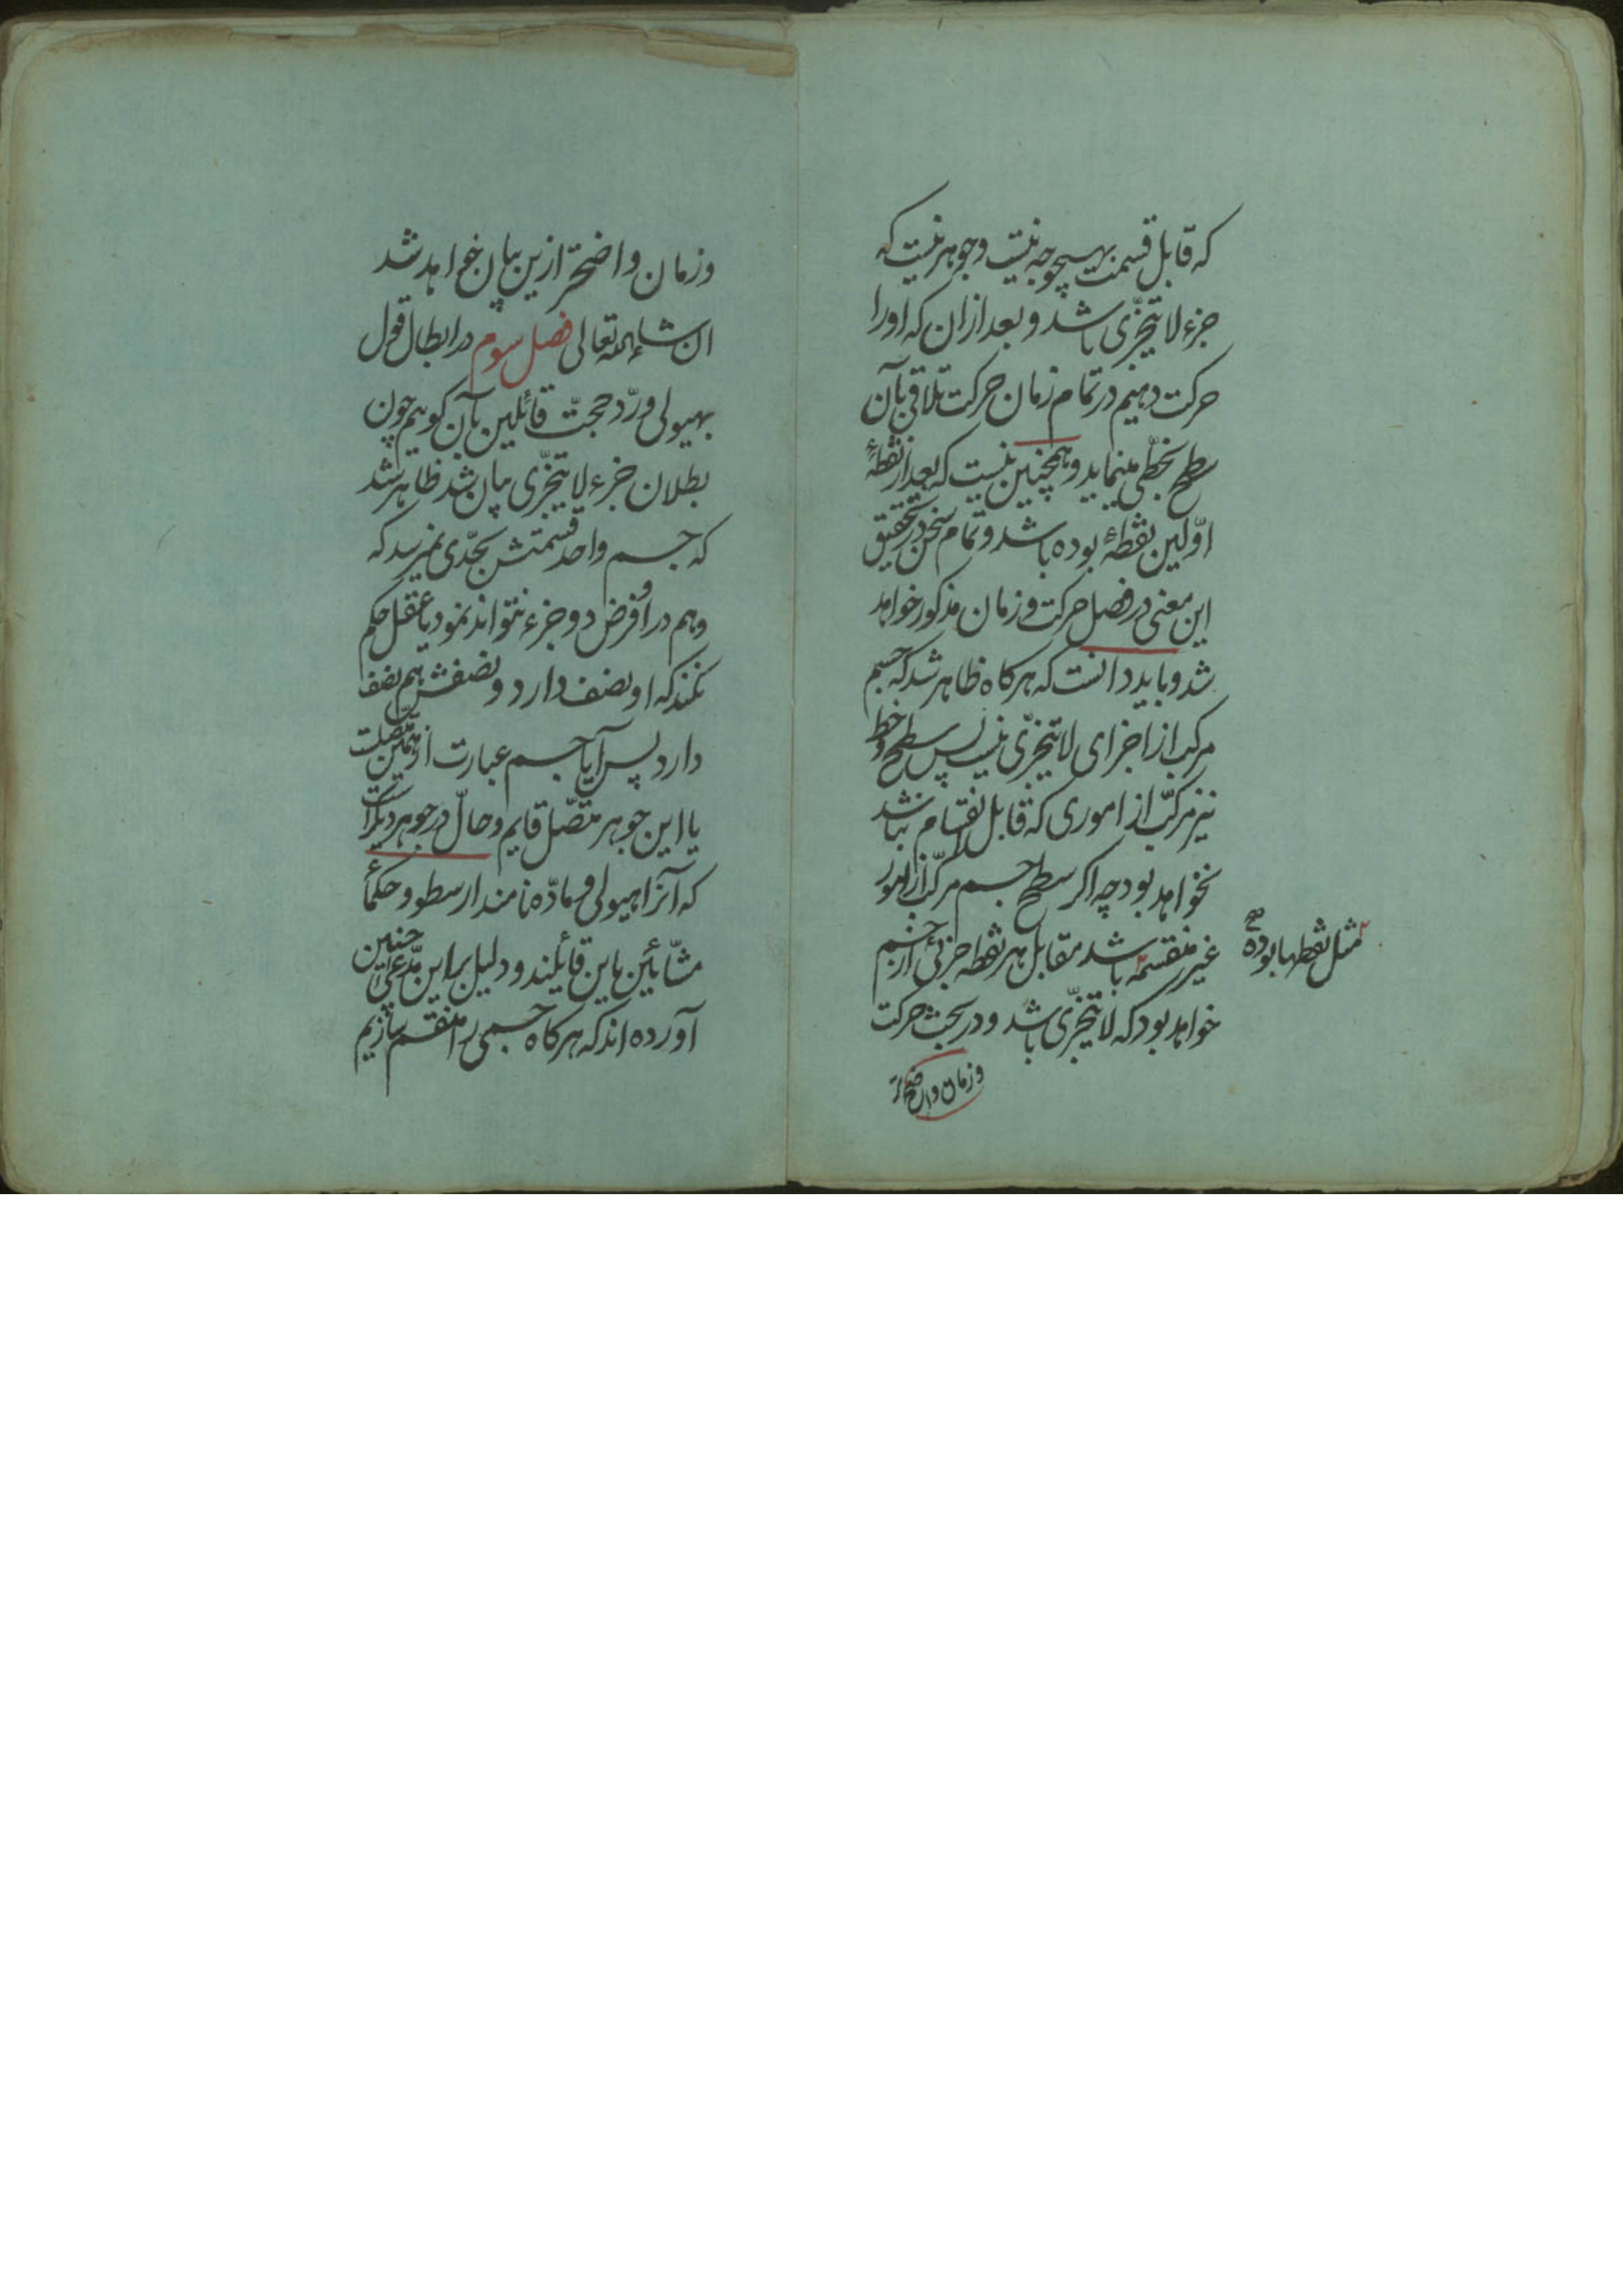 که قابل قسمت بهیچوجه نیست و جوهر نیست که
جزء لا یتجزّی باشد و بعد از ان که او را
حرکت دهیم در تمام زمان حرکت تلاقی بآن
سطح بخطّی مینماید و همچنین نیست که بعد از نقطهٔ
اوّلین نقطهٔ بوده باشد و تمام سخن در تحقیق
این معنی در فصل حرکت و زمان مذکور خواهد
شد و باید دانست که هرکاه ظاهر شد که جسم
مرکب از اجزای لا یتجزّی نیست پس سطح و خط
نیز مرکّب از اموری که قابل انقسام نباشد
نخواهد بود چه اکر سطح جسم مرکّب از امور
غیر منقسمه باشد مقابل هر نقطه جزئی از جسم
مثل نقطها بوده صح
خواهد بود که لا یتجزّی باشد و در بحث حرکت
و زمان واضحتر
و زمان واضحتر ازین بیان خواهد شد
ان شاء الله تعالی فصل سوم در ابطال قول
بهیولی و ردّ حجّت قائلین بآن کوییم چون
بطلان جزء لا یتجزّی بیان شد ظاهر شد
که جسم واحد قسمتش بحدّی نمیرسد که
وهم در او فرض دو جزء نتواند نمود یا عقل حکم
نکند که او نصف دارد و نصفش هم نصف
دارد پس آیا جسم عبارت از همین متّصلست
یا این جوهر متّصل قایم و حالّ در جوهر دیکر است
که آنرا هیولی و مادّه نامند ارسطو و حکمأ
مشّائین باین قائلند و دلیل بر این مدّعی چنین
آورده اند که هرکاه جسمی را منقسم سازیم